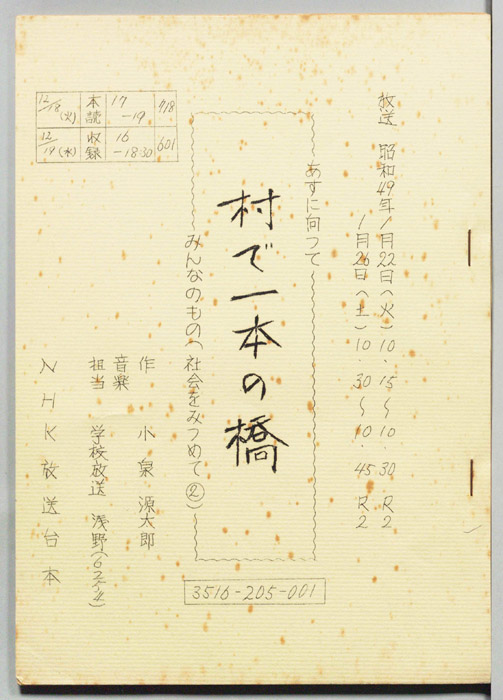 放送 昭和49年1月22日(火)10.15〜10.30.R2
1月26日(土)10.30〜10.45 R2
あすに向って
村で一本の橋
みんなのもの(社会をみつめて②)
3516-205-001
作 小泉源太郎
音楽
担当 学校放送 浅野
NHK放送台本
12/18(火) 本読 17-19 718
12/19(水) 収録 16-18:30 601